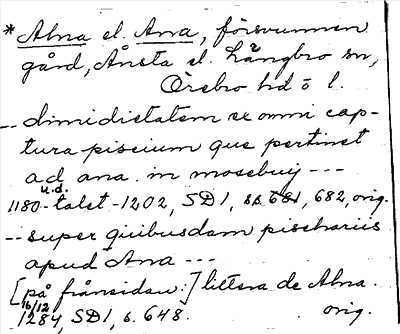 *Alna el. Ana, försvunnen
gård, Ånsta el. Längbro sn,
Örebro hd o l.
-- dimidietatem ex omni cap-
tura piscium que pertinet
ad ana. in mosebuij ---
u.d.
1180-talet-1202, SD1, ss 681, 682, orig.
-- super quibusdam piscariis
apud Ana ---
[på frånsidan:] littera de Alna.
16/12
1284, SD1, s. 648. orig.